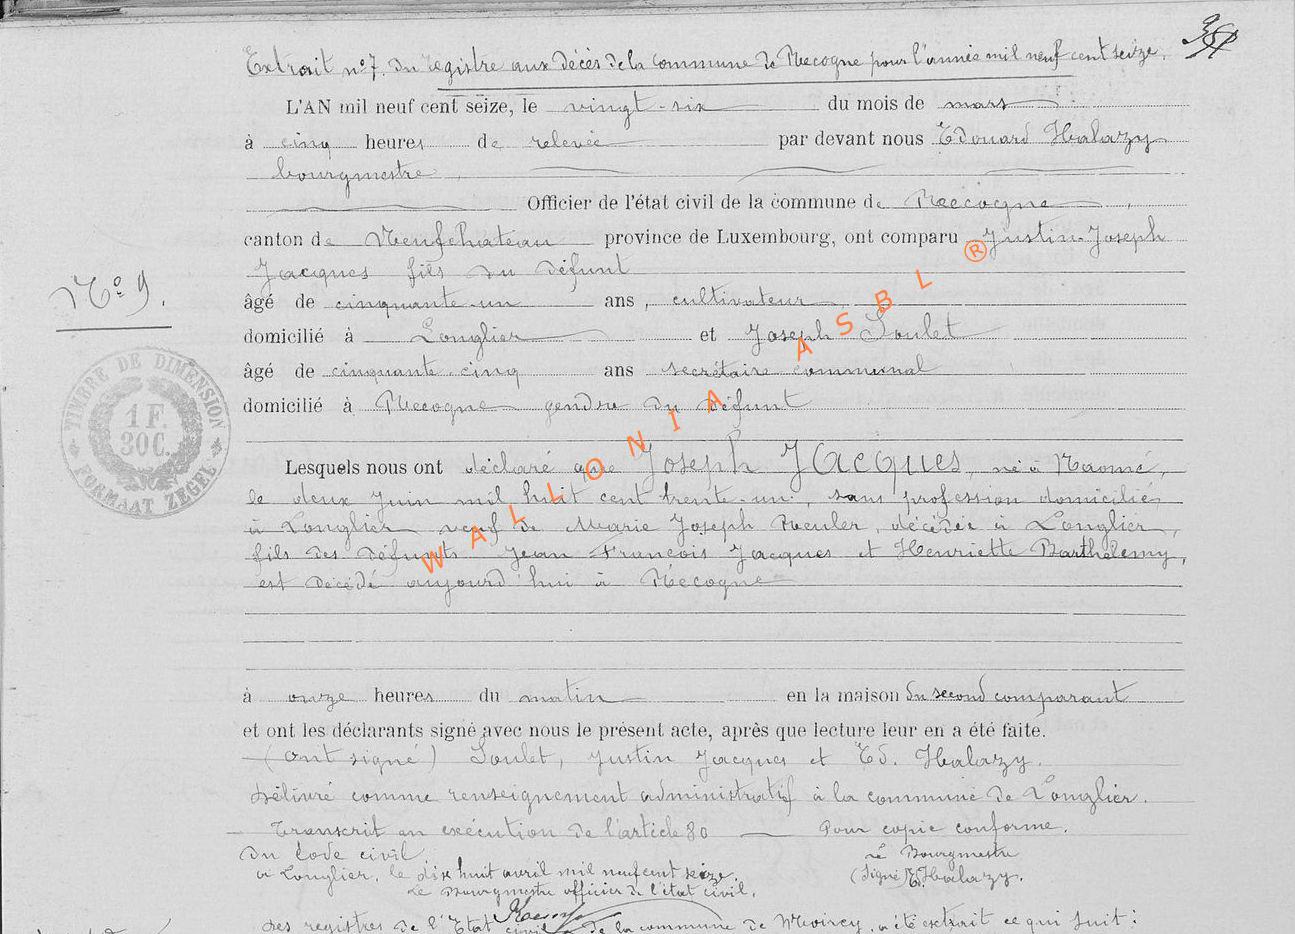 Extrait n° 7 du registre aux décès de la commune de Recogne pour l'année mil neuf cent seize.
L'AN mil neuf cent seize, le vingt-six du mois de mars
à cinq heures de relevée par devant nous Edouard Halazy
bourgmestre
Officier de l'état civil de la commune de Recogne
canton de Neufchateau province de Luxembourg, ont comparu Justin-Joseph
Jacques fils du défunt
N° 9.
âgé de cinquante-un ans, cultivateur
domicilié à Longlier et Joseph Soulet
âgé de cinquante-cinq ans secrétaire communal
domicilié à Recogne gendre du défunt
TIMBRE DE DIMENSION
1 F.
30 C.
FORMAAT ZEGEL
Lesquels nous ont déclaré que Joseph Jacques, né à Naomé,
le deux juin mil huit cent trente-un, sans profession domicilié
à Longlier veuf de Marie Joseph décédée à Longlier,
fils des défunts Jean François Jacques et Henriette Barthélemy,
est décédé aujourd'hui à Recogne
à onze heures du matin en la maison du second comparant
et ont les déclarants signé avec nous le présent acte, après que lecture leur en a été faite.
(ont signé) Soulet, Justin Jacques et Ed. Halazy.
Délivré comme renseignement administratif à la commune de Longlier.
Transcrit en exécution de l'article 80 — Pour copie conforme.
du Code civil
le Bourgmestre
à Longlier, le dix huit avril mil neuf cent seize.
(Signé) E. Halazy.
Le Bourgmestre officier de l'état civil,
des registres de l'Etat civil de la commune de Moircy, a été extrait ce qui suit:
WALLONIA ASBL ®